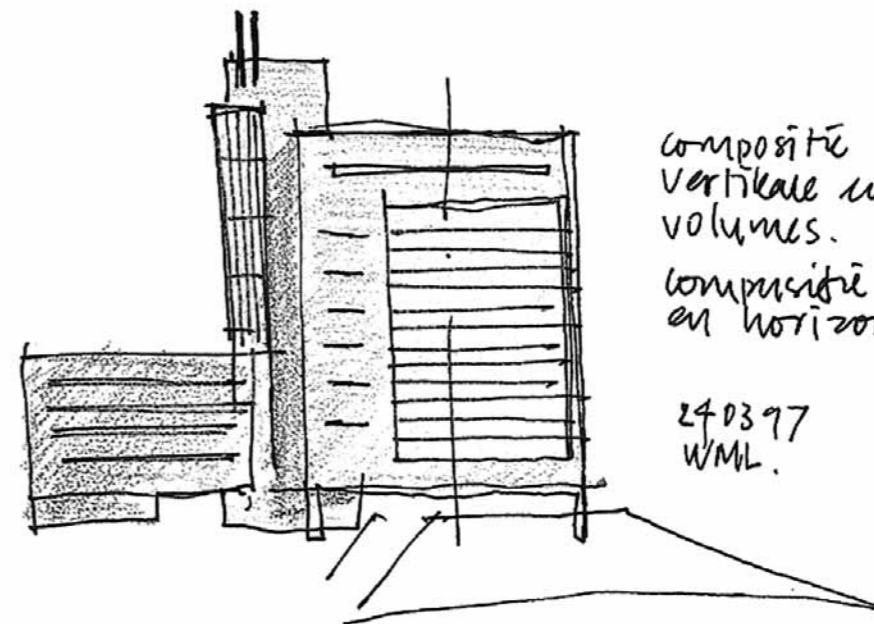 compositie
vertikale
volumes.
compositie
en horizo
240397
WML.